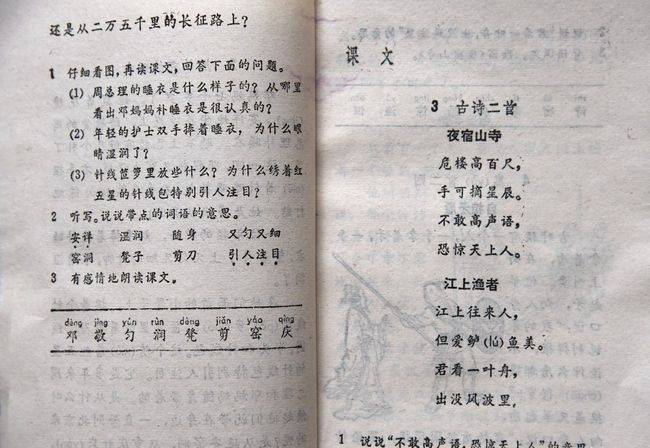 还是从二万五千里的长征路上？
1 仔细看图，再读课文，回答下面的问题。
(1) 周总理的睡衣是什么样子的？从哪里
看出邓妈妈补睡衣是很认真的？
(2) 年轻的护士双手捧着睡衣，为什么眼
睛湿润了？
(3) 针线笸箩里放些什么？为什么绣着红
五星的针线包特别引人注目？
2 听写。说说带点的词语的意思。
安详 湿润 随身 又匀又细
窑洞 凳子 剪刀 引人注目
3 有感情地朗读课文。
dèng jìng yún rùn dèng jiǎn yáo qìng
邓 敬 匀 润 凳 剪 窑 庆
课文
3 古诗二首
夜宿山寺
危楼高百尺，
手可摘星辰。
不敢高声语，
恐惊天上人。
江上渔者
江上往来人，
但爱鲈(lú)鱼美。
君看一叶舟，
出没风波里。
1 说说“不敢高声语，恐惊天上人”的意思